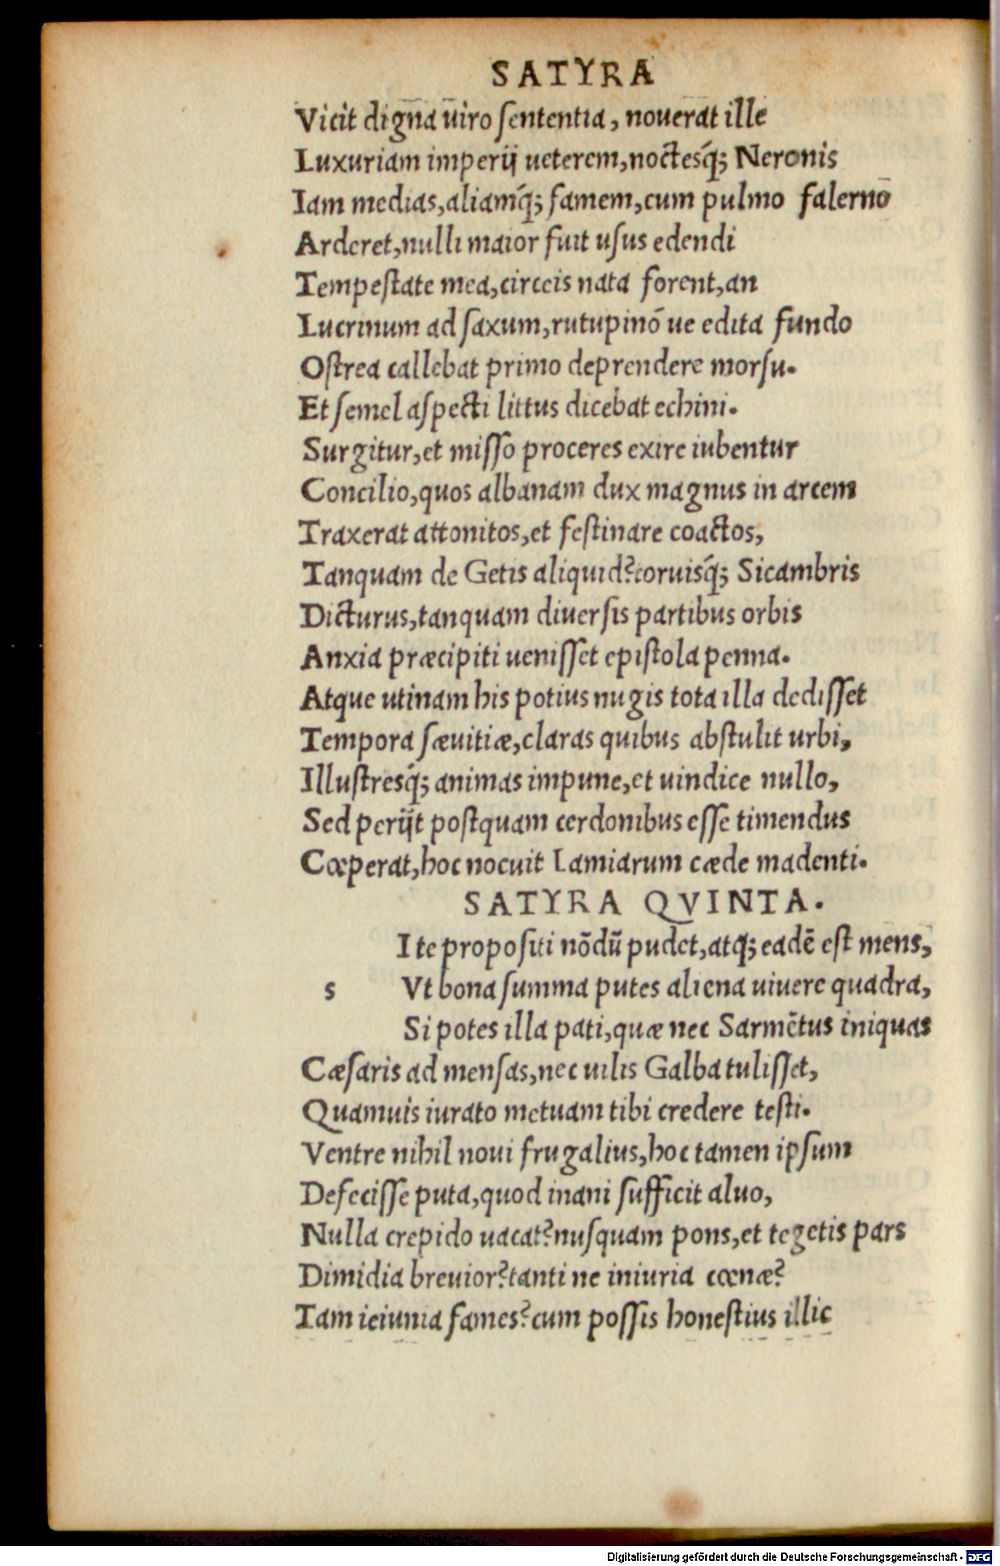 SATYRA
Vicit digna uiro sententia, nouerat ille
Luxuriam imperij ueterem, noctesq́; Neronis
Iam medias, aliamq́; famem, cum pulmo falerno
Arderet, nulli maior fuit usus edendi
Tempestate mea, circeis nata forent, an
Lucrinum ad saxum, rutupinó ue edita fundo
Ostrea callebat primo deprendere morsu.
Et semel aspecti littus dicebat echini.
Surgitur, et misso proceres exire iubentur
Concilio, quos albanam dux magnus in arcem
Traxerat attonitos, et festinare coactos,
Tanquam de Getis aliquid? toruisq́; Sicambris
Dicturus, tanquam diuersis partibus orbis
Anxia præcipiti uenisset epistola penna.
Atque utinam his potius nugis tota illa dedisset
Tempora sæuitiæ, claras quibus abstulit urbi,
Illustresq́; animas impune, et uindice nullo,
Sed perijt postquam cerdonibus esse timendus
Cœperat, hoc nocuit Lamiarum cæde madenti.
SATYRA QVINTA.
I te propositi nōdū pudet, atq; eadē est mens,
s Vt bona summa putes aliena uiuere quadra,
Si potes illa pati, quæ nec Sarmētus iniquas
Cæsaris ad mensas, nec uilis Galba tulisset,
Quamuis iurato metuam tibi credere testi.
Ventre nihil noui frugalius, hoc tamen ipsum
Defecisse puta, quod inani sufficit aluo,
Nulla crepido uacat? nusquam pons, et tegetis pars
Dimidia breuior? tanti ne iniuria cœnæ?
Tam ieiunia fames? cum possis honestius illic
Digitalisierung gefördert durch die Deutsche Forschungsgemeinschaft - DFG